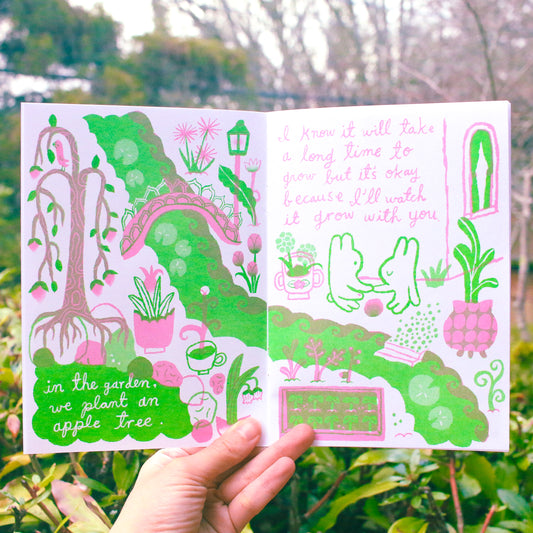 in the garden,
we plant an
apple tree.
I know it will take
a long time to
grow but it's okay
because I'll watch
it grow with you.